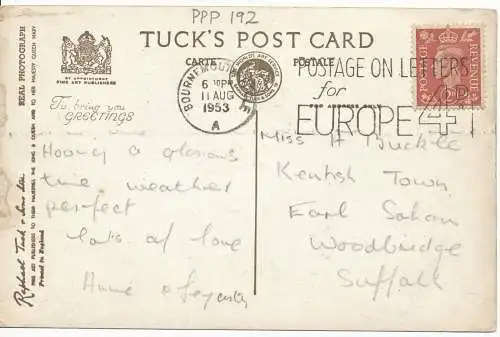 PPP 192
TUCK'S POST CARD
CARTE POSTALE
REAL PHOTOGRAPH
BY APPOINTMENT
FINE ART PUBLISHERS
To bring you
GREETINGS
BOURNEMOUTH
6 PM
11 AUG
1953
A
POSTAGE ON LETTERS
for
EUROPE 4D
POSTAGE
REVENUE
Having a glorious
time weather
perfect
lots of love
Anne
Miss A Buckle
Kentish Town
Earl Soham
Woodbridge
Suffolk
Raphael Tuck & Sons Ltd.
FINE ART PUBLISHERS TO THEIR MAJESTIES THE KING & QUEEN AND TO HER MAJESTY QUEEN MARY
Printed in England